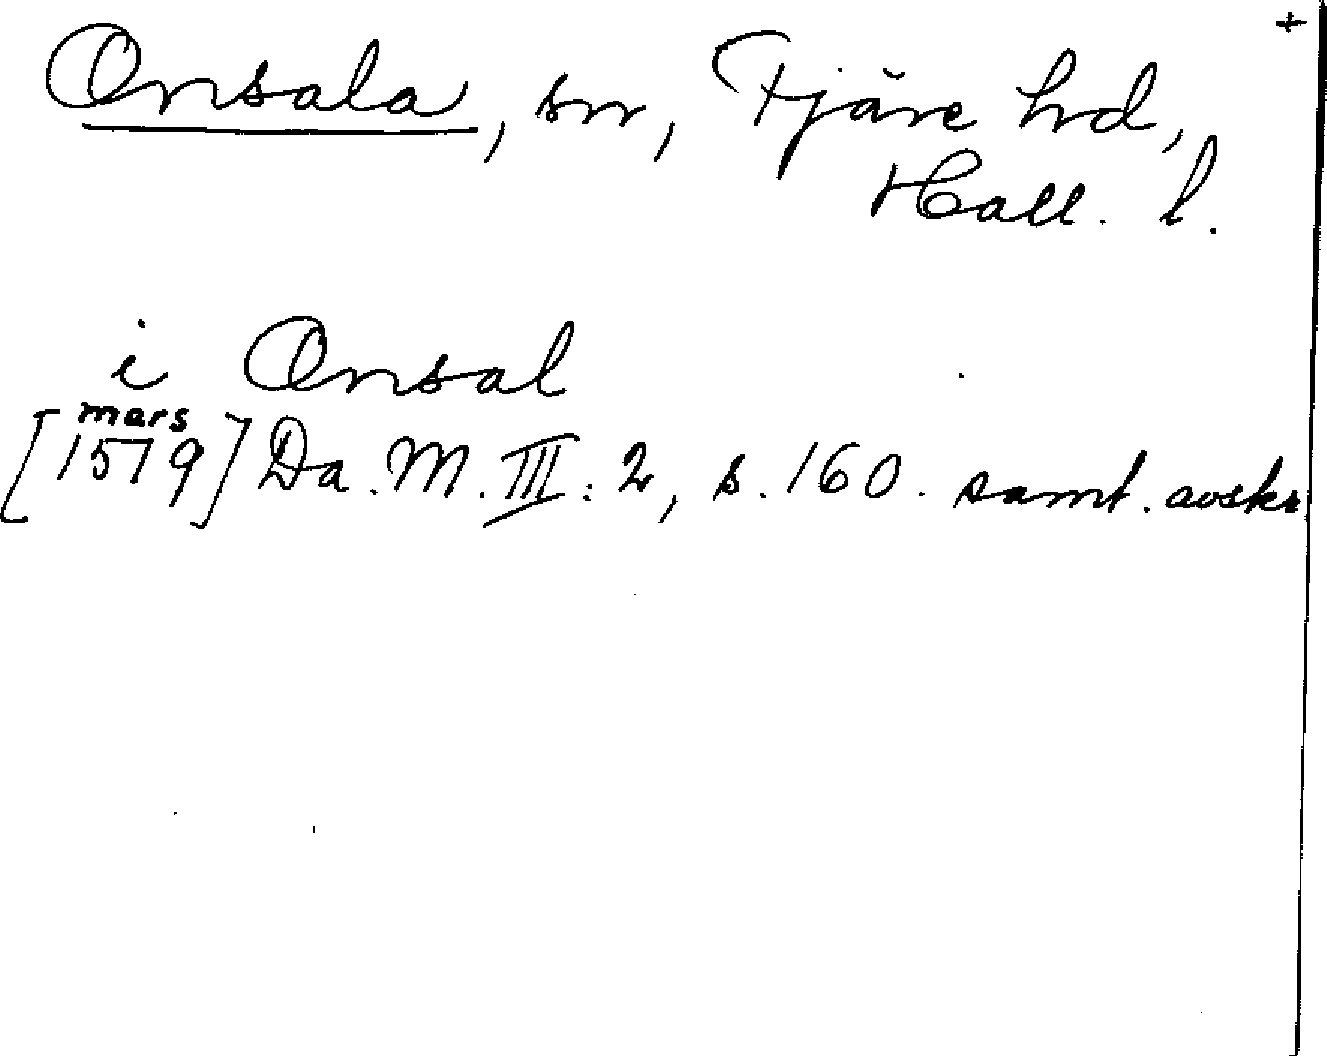 +
Onsala, sn, Fjäre hd,
Hall. l.
i Onsal
mars
[1579] Da. M. III: 2, s. 160. samt. avskr